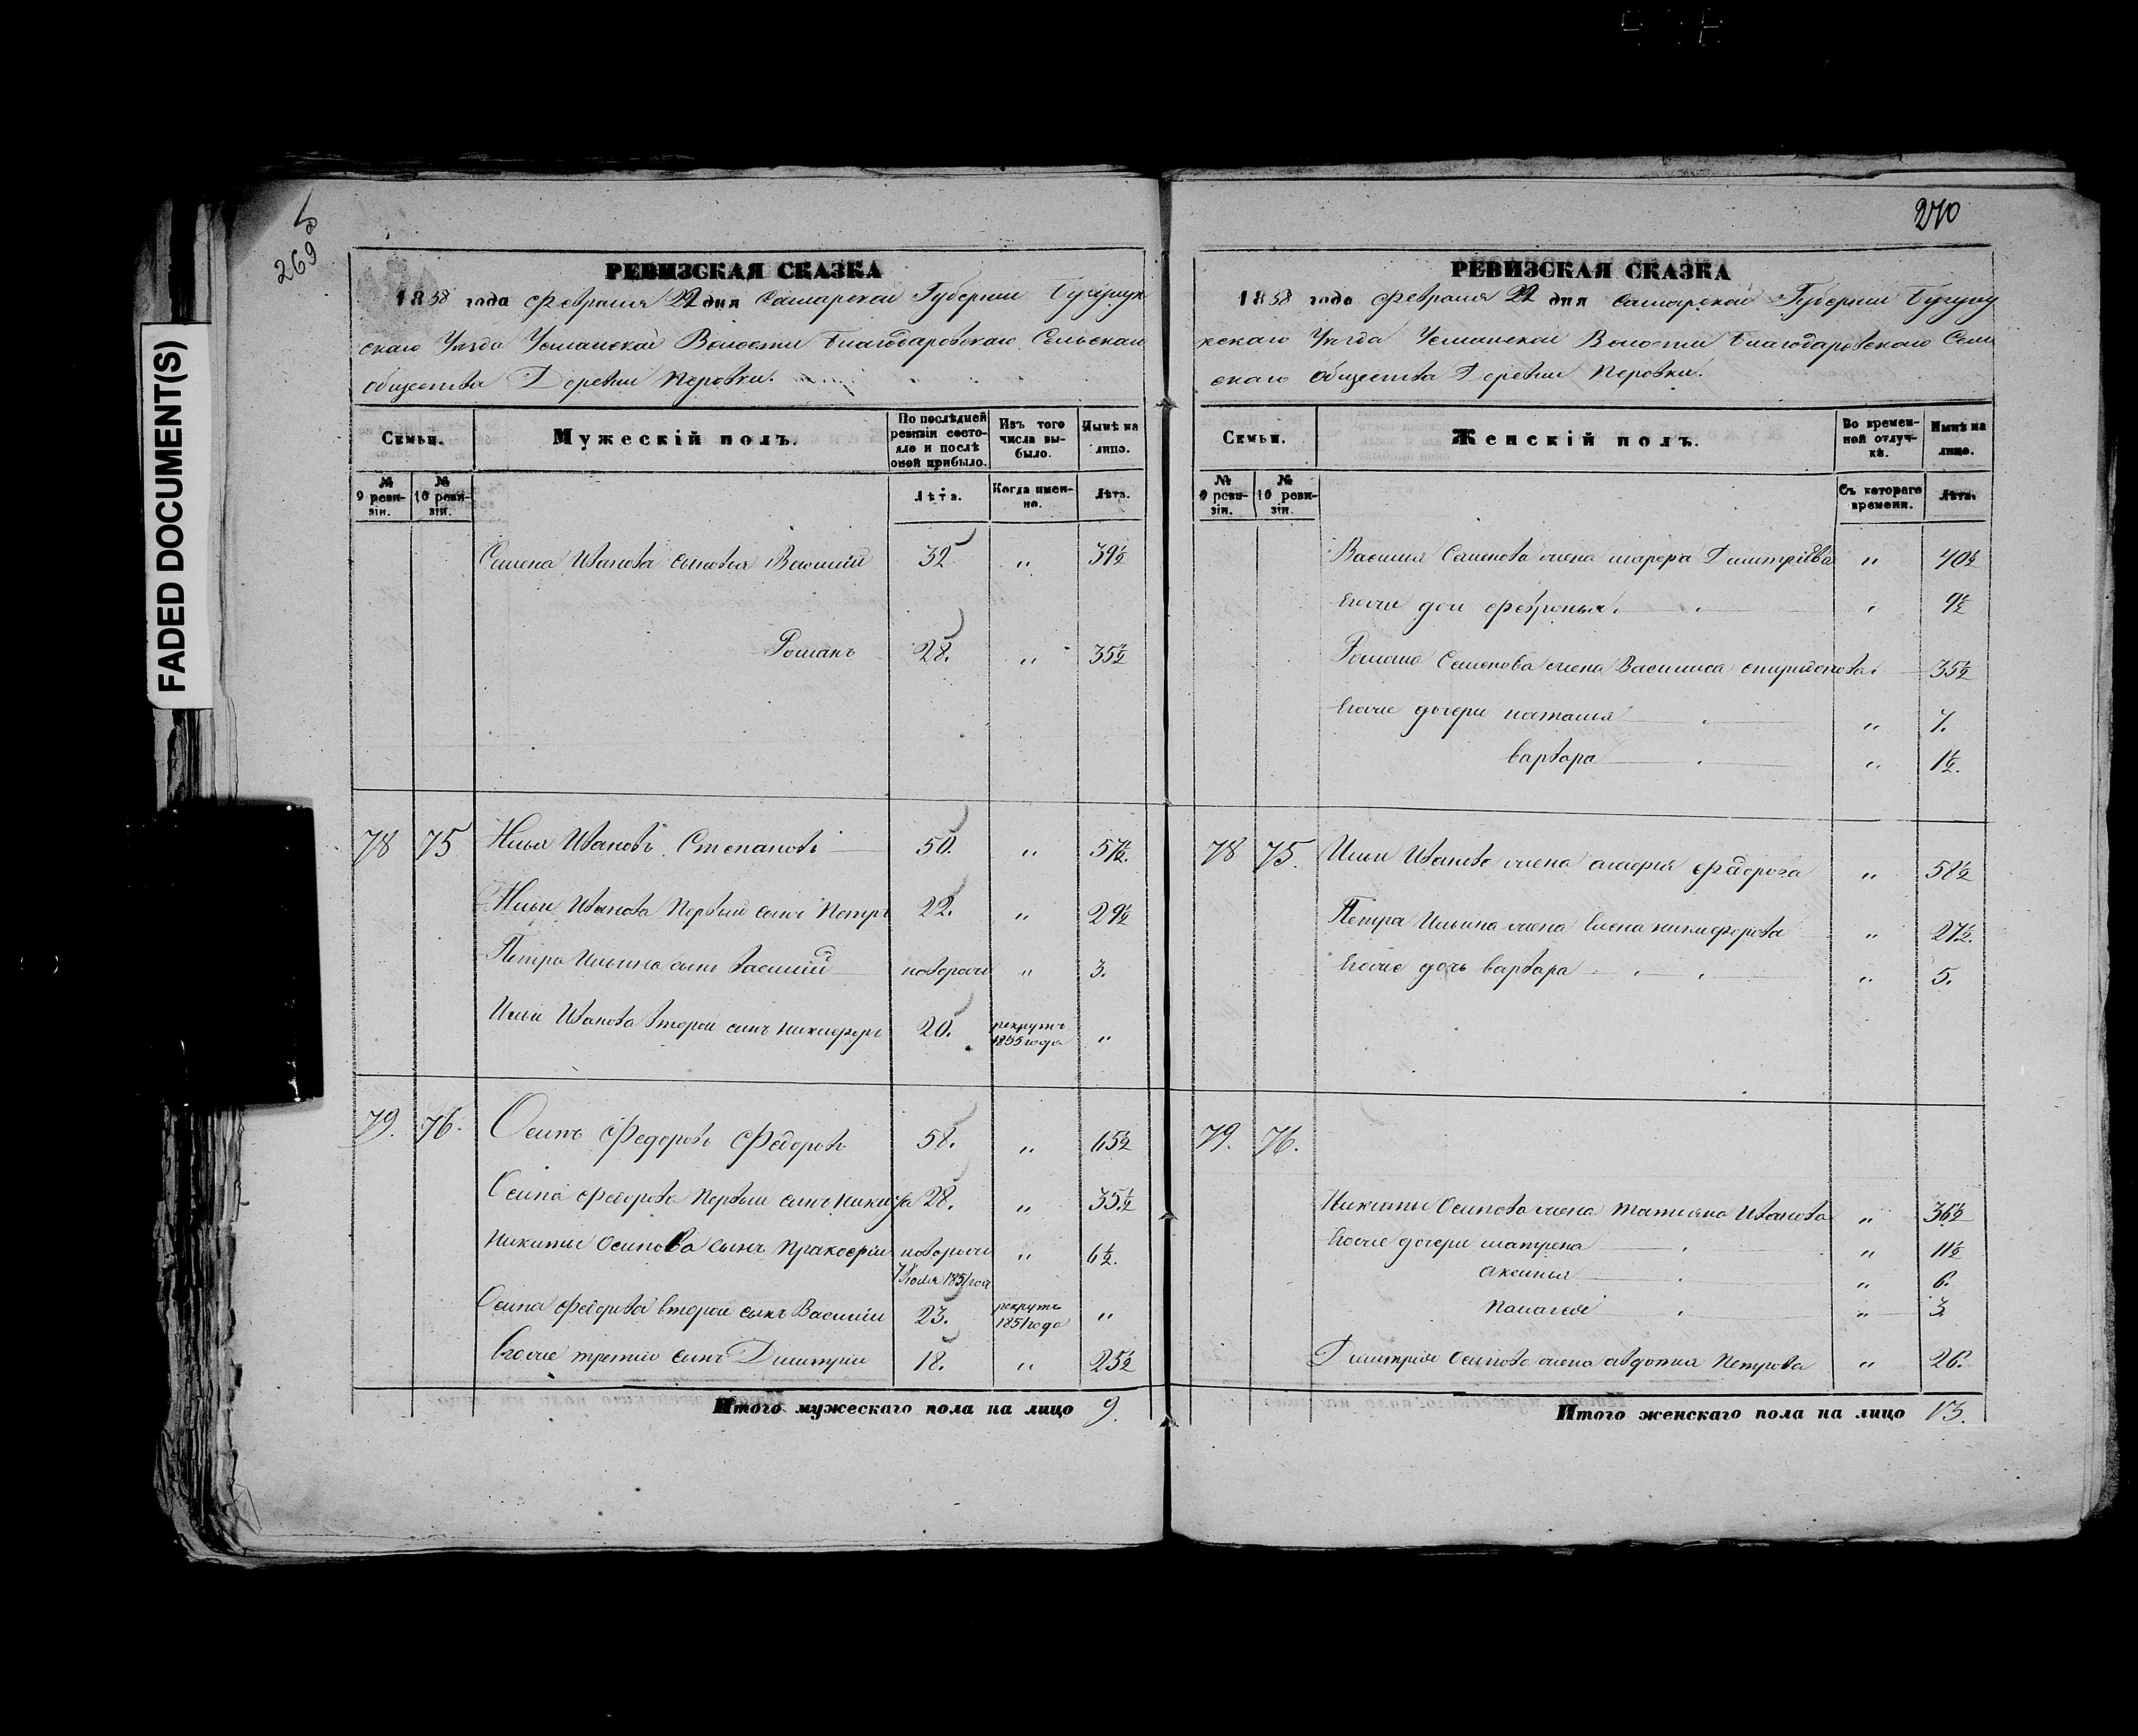 FADED DOCUMENT(S)
269
270
РЕВИЗСКАЯ СКАЗКА
1858 года Февраля 22 дня Самарской Губернии Бугурус
скаго Уезда Усманской Волости Благодаровскаго Сельскаго
общества Деревни Перовки.
Семьи.
Мужескій полъ.
По послѣдней ревизіи состояло и послѣ оной прибыло.
Изъ того числа выбыло.
Нынѣ на лицо.
№ 9 ревизіи.
№ 10 ревизіи.
Лѣта.
Когда именно.
Лѣта.
Семена Иванова сыновья Василий 32 " 39½
Романъ 28. " 35½
78 75 Илья Ивановъ Степановъ 50. " 57½.
Ильи Иванова Первый сынъ Петръ 22. " 29½
Петра Ильина сынъ Василий новорож " 3.
Ильи Иванова второй сынъ Никифоръ 20. рекрутъ 1855 года "
79. 76. Осипъ Федоровъ Федоровъ 58. " 65½
Осипа Федорова Первый сынъ Никита 28. " 35½
Никиты Осипова сынъ Пракофій новорож " 6½.
1851 год
Осипа Федорова второй сынъ Василий 23. рекрутъ 1851 года "
Егоже третий сынъ Димитрий 18. " 25½
Итого мужескаго пола на лицо 9.
РЕВИЗСКАЯ СКАЗКА
1858 года Февраля 22 дня Самарской Губернии Бугуру
скаго Уезда Усманской Волости Благодаровскаго Сель
скаго общества Деревни Перовки.
Семьи.
Женскій полъ.
Во временной отлучкѣ.
Нынѣ на лицо.
№ 9 ревизіи.
№ 10 ревизіи.
Съ котораго времени.
Лѣта.
Василия Семенова жена Димитріева " 40½
Егоже доч Февронья. " 9½
Романа Семенова жена Василиса Спиридонова. 35½
Егоже дочери Наталья " 7.
Варвара " 1½.
78 75. Ильи Иванова жена Федорова " 58½
Петра Ильина жена Елена Никифорова " 27½.
Егоже дочь Варвара " 5.
79. 76.
Никиты Осипова жена Татьяна Иванова " 36½
Егоже дочери Матрена " 11½
Аксинья " 6.
Палагея " 3.
Димитрия Осипова жена Авдотья Петрова " 26.
Итого женскаго пола на лицо 13.